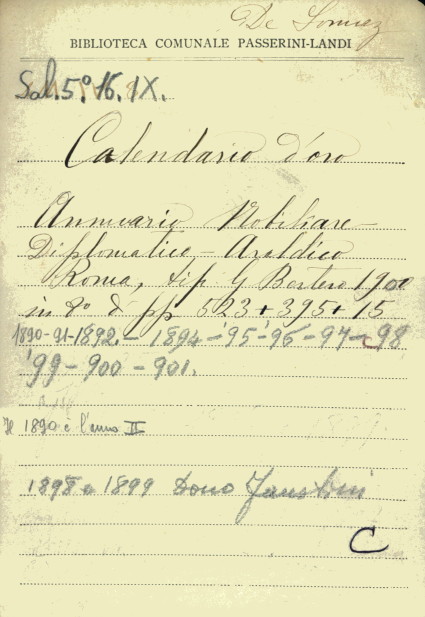 BIBLIOTECA COMUNALE PASSERINI-LANDI
Sal. 5º. 16. IX.
Calendario d'oro
Annuario Nobiliare -
Diplomatico - Araldico
Roma, tip G Bertero 1900
in 8º d pp 523 + 395 + 15
1890-91-1892. - 1894 - '95 - '96 - 97 - 98
'99 - 900 - 901.
Il 1890 è l'anno II
1898 e 1899 Dono Faustini
C